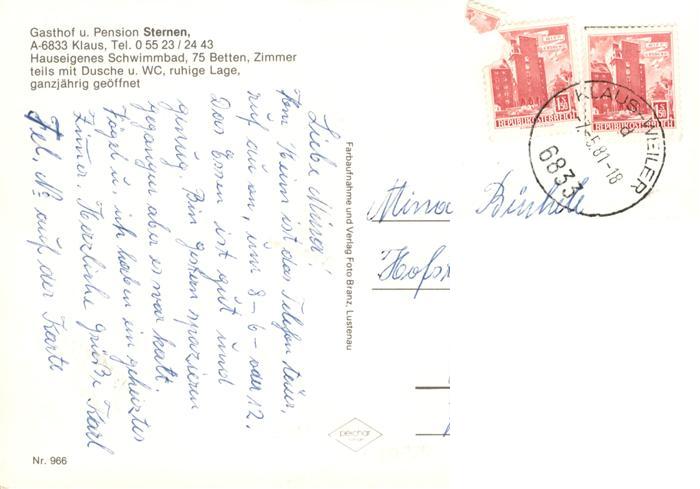 Gasthof u. Pension Sternen,
A-6833 Klaus, Tel. 0 55 23 / 24 43
Hauseigenes Schwimmbad, 75 Betten, Zimmer
teils mit Dusche u. WC, ruhige Lage,
ganzjährig geöffnet
Liebe Mina!
ist das Telefon teuer,
ruf an um 8 - 6 - oder 12.
Das Essen ist gut und
genug. Bin gestern spazieren
gegangen aber es war kalt.
u. ich haben ein geheiztes
Zimmer. Herzliche Grüße Karl
Tel. No auf der Karte
Farbaufnahme und Verlag Foto Branz, Lustenau
Mina
REPUBLIK ÖSTERREICH
REPUBLIK ÖSTERREICH
KLAUS-WEILER
6833
Nr. 966